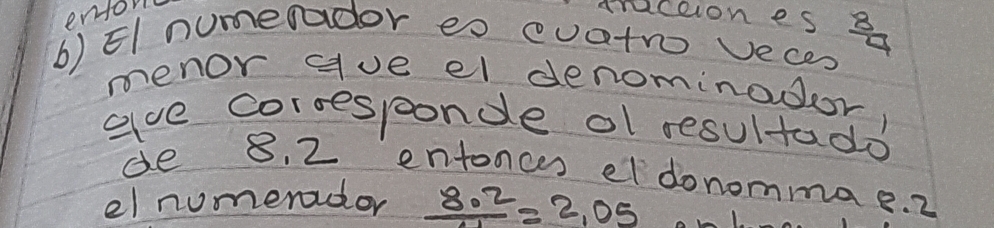 fracción es 8/4
b) El numerador es cuatro veces
menor que el denominador,
que corresponde al resultado
de 8.2 entonces el donomma 8.2
el numerador 8.2/4 = 2,05